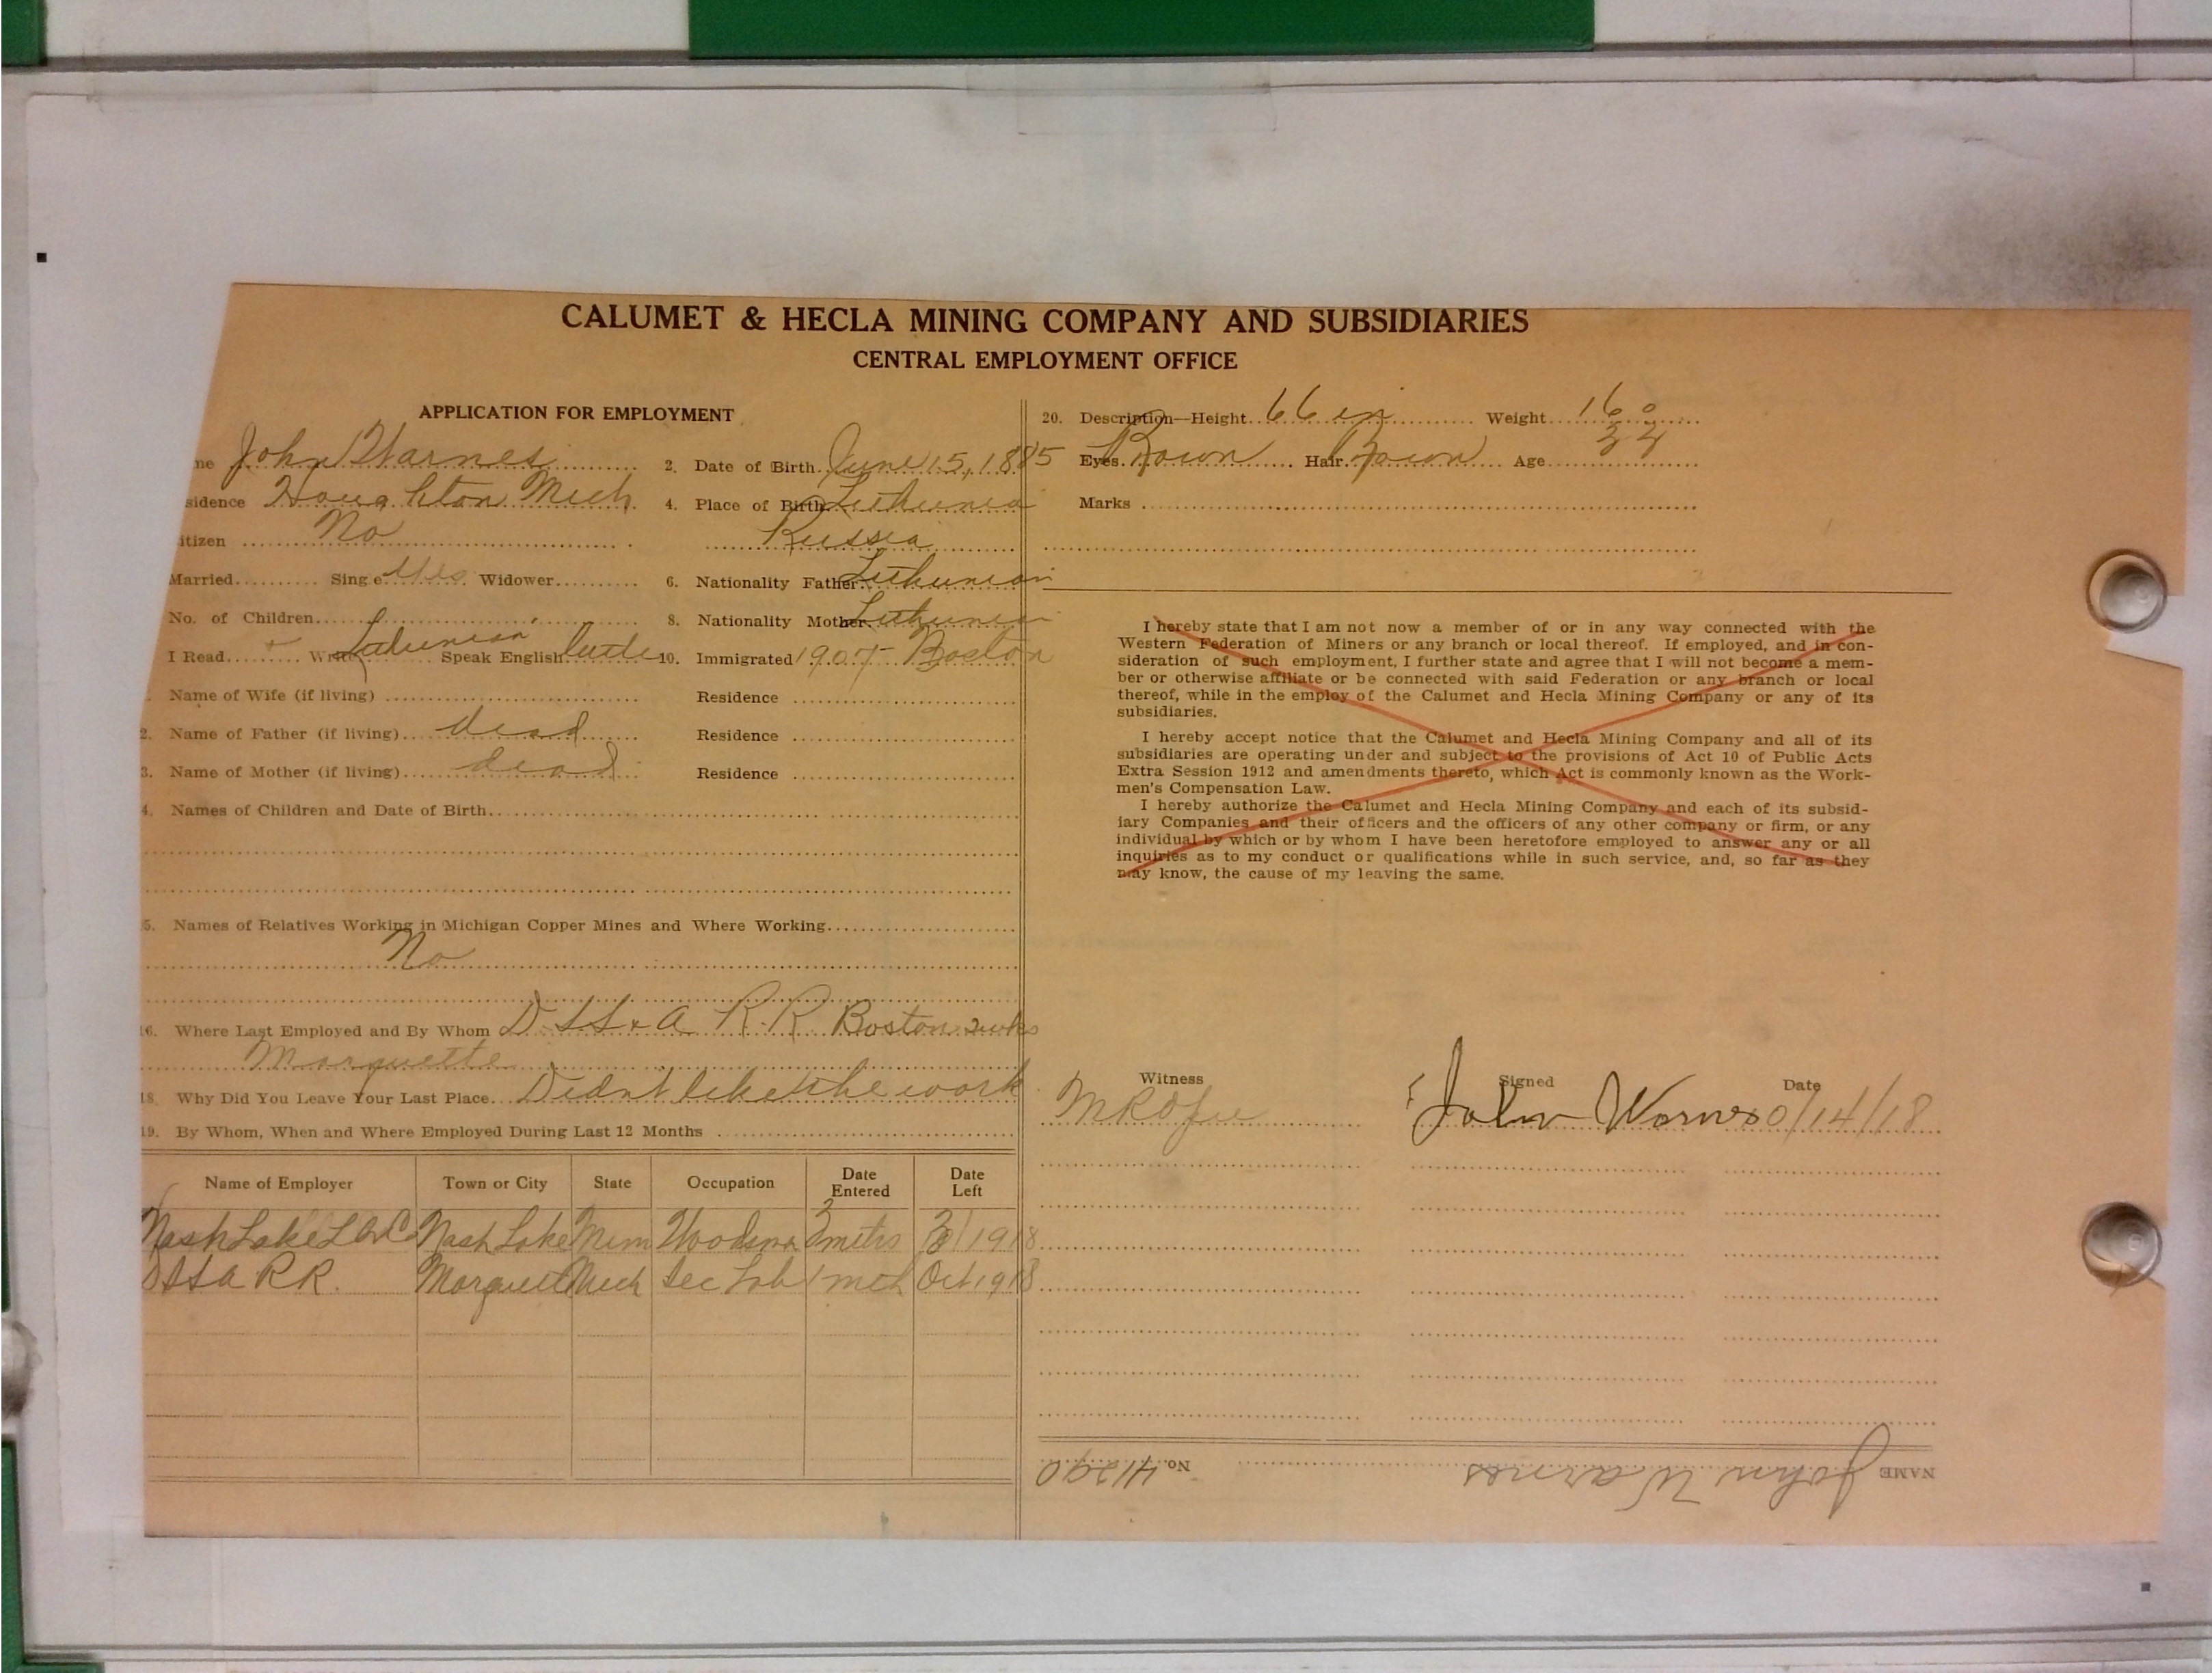 CALUMET & HECLA MINING COMPANY AND SUBSIDIARIES
CENTRAL EMPLOYMENT OFFICE
APPLICATION FOR EMPLOYMENT
ne John Warnes 2. Date of Birth June 15, 1885
sidence Houghton Mich 4. Place of Birth Lithunia
itizen No Russia
Married Sing e Yes Widower 6. Nationality Father Lithunian
No. of Children 8. Nationality Mother Lithunian
I Read Write Lithunian Speak English little 10. Immigrated 1907 Boston
Name of Wife (if living) Residence
2. Name of Father (if living) dead Residence
3. Name of Mother (if living) dead Residence
4. Names of Children and Date of Birth
5. Names of Relatives Working in Michigan Copper Mines and Where Working
No
16. Where Last Employed and By Whom D SS & A R.R. Boston 2 wks
Marquette
18. Why Did You Leave Your Last Place Didnt like the work
19. By Whom, When and Where Employed During Last 12 Months
Name of Employer Town or City State Occupation Date Entered Date Left
Nash Lake Nash Lake 3 mths 1918
DSSA RR. Marquette Mich Sec Lab 1 mth Oct 1918
20. Description—Height 66 in Weight 160
Eyes Brown Hair Brown Age 33
Marks
I hereby state that I am not now a member of or in any way connected with the
Western Federation of Miners or any branch or local thereof. If employed, and in con-
sideration of such employment, I further state and agree that I will not become a mem-
ber or otherwise affiliate or be connected with said Federation or any branch or local
thereof, while in the employ of the Calumet and Hecla Mining Company or any of its
subsidiaries.
I hereby accept notice that the Calumet and Hecla Mining Company and all of its
subsidiaries are operating under and subject to the provisions of Act 10 of Public Acts
Extra Session 1912 and amendments thereto, which Act is commonly known as the Work-
men's Compensation Law.
I hereby authorize the Calumet and Hecla Mining Company and each of its subsid-
iary Companies and their officers and the officers of any other company or firm, or any
individual by which or by whom I have been heretofore employed to answer any or all
inquiries as to my conduct or qualifications while in such service, and, so far as they
may know, the cause of my leaving the same.
Witness Signed Date
John Warnes 10/14/18
NAME John Warnes No. 41290